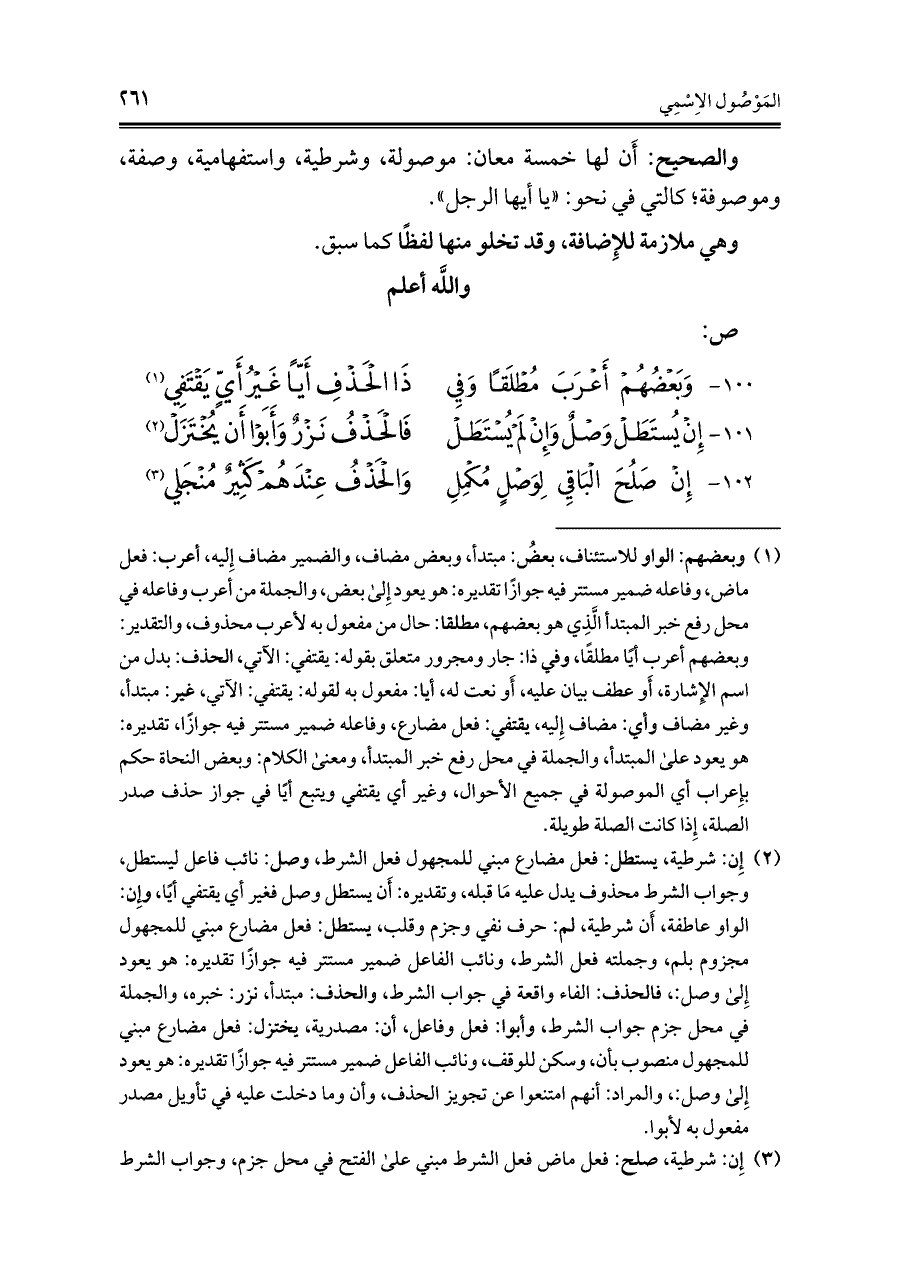 المَوْصُول الاِسْمِي ٢٦١
والصحيح: أَن لها خمسة معان: موصولة، وشرطية، واستفهامية، وصفة،
وموصوفة؛ كالتي في نحو: «يا أيها الرجل».
وهي ملازمة للإِضافة، وقد تخلو منها لفظًا كما سبق.
واللَّه أعلم
ص:
١٠٠- وَبَعْضُهُمْ أَعْرَبَ مُطْلَقًا وَفِي ذَا الْحَذْفِ أَيًّا غَيْرُ أَيٍّ يَقْتَفِي(١)
١٠١- إِنْ يُسْتَطَلْ وَصْلٌ وَإِنْ لَمْ يُسْتَطَلْ فَالْحَذْفُ نَزْرٌ وَأَبَوْا أَن يُخْتَزَلْ(٢)
١٠٢- إِنْ صَلُحَ الْبَاقِي لِوَصْلٍ مُكْمِلِ وَالْحَذْفُ عِنْدَهُمْ كَثِيْرٌ مُنْجَلِي(٣)
(١) وبعضهم: الواو للاستئناف، بعضُ: مبتدأ، وبعض مضاف، والضمير مضاف إِليه، أعرب: فعل
ماض، وفاعله ضمير مستتر فيه جوازًا تقديره: هو يعود إِلىٰ بعض، والجملة من أعرب وفاعله في
محل رفع خبر المبتدأ الَّذِي هو بعضهم، مطلقا: حال من مفعول به لأعرب محذوف، والتقدير:
وبعضهم أعرب أيًا مطلقًا، وفي ذا: جار ومجرور متعلق بقوله: يقتفي: الآتي، الحذف: بدل من
اسم الإِشارة، أَو عطف بيان عليه، أَو نعت له، أيا: مفعول به لقوله: يقتفي: الآتي، غير: مبتدأ،
وغير مضاف وأي: مضاف إِليه، يقتفي: فعل مضارع، وفاعله ضمير مستتر فيه جوازًا، تقديره:
هو يعود علىٰ المبتدأ، والجملة في محل رفع خبر المبتدأ، ومعنىٰ الكلام: وبعض النحاة حكم
بإِعراب أي الموصولة في جميع الأحوال، وغير أي يقتفي ويتبع أيًا في جواز حذف صدر
الصلة، إِذا كانت الصلة طويلة.
(٢) إِن: شرطية، يستطل: فعل مضارع مبني للمجهول فعل الشرط، وصل: نائب فاعل ليستطل،
وجواب الشرط محذوف يدل عليه مَا قبله، وتقديره: أَن يستطل وصل فغير أي يقتفي أيًا، وإِن:
الواو عاطفة، أَن شرطية، لم: حرف نفي وجزم وقلب، يستطل: فعل مضارع مبني للمجهول
مجزوم بلم، وجملته فعل الشرط، ونائب الفاعل ضمير مستتر فيه جوازًا تقديره: هو يعود
إِلىٰ وصل:، فالحذف: الفاء واقعة في جواب الشرط، والحذف: مبتدأ، نزر: خبره، والجملة
في محل جزم جواب الشرط، وأبوا: فعل وفاعل، أن: مصدرية، يختزل: فعل مضارع مبني
للمجهول منصوب بأن، وسكن للوقف، ونائب الفاعل ضمير مستتر فيه جوازًا تقديره: هو يعود
إِلىٰ وصل:، والمراد: أنهم امتنعوا عن تجويز الحذف، وأن وما دخلت عليه في تأويل مصدر
مفعول به لأبوا.
(٣) إِن: شرطية، صلح: فعل ماض فعل الشرط مبني علىٰ الفتح في محل جزم، وجواب الشرط